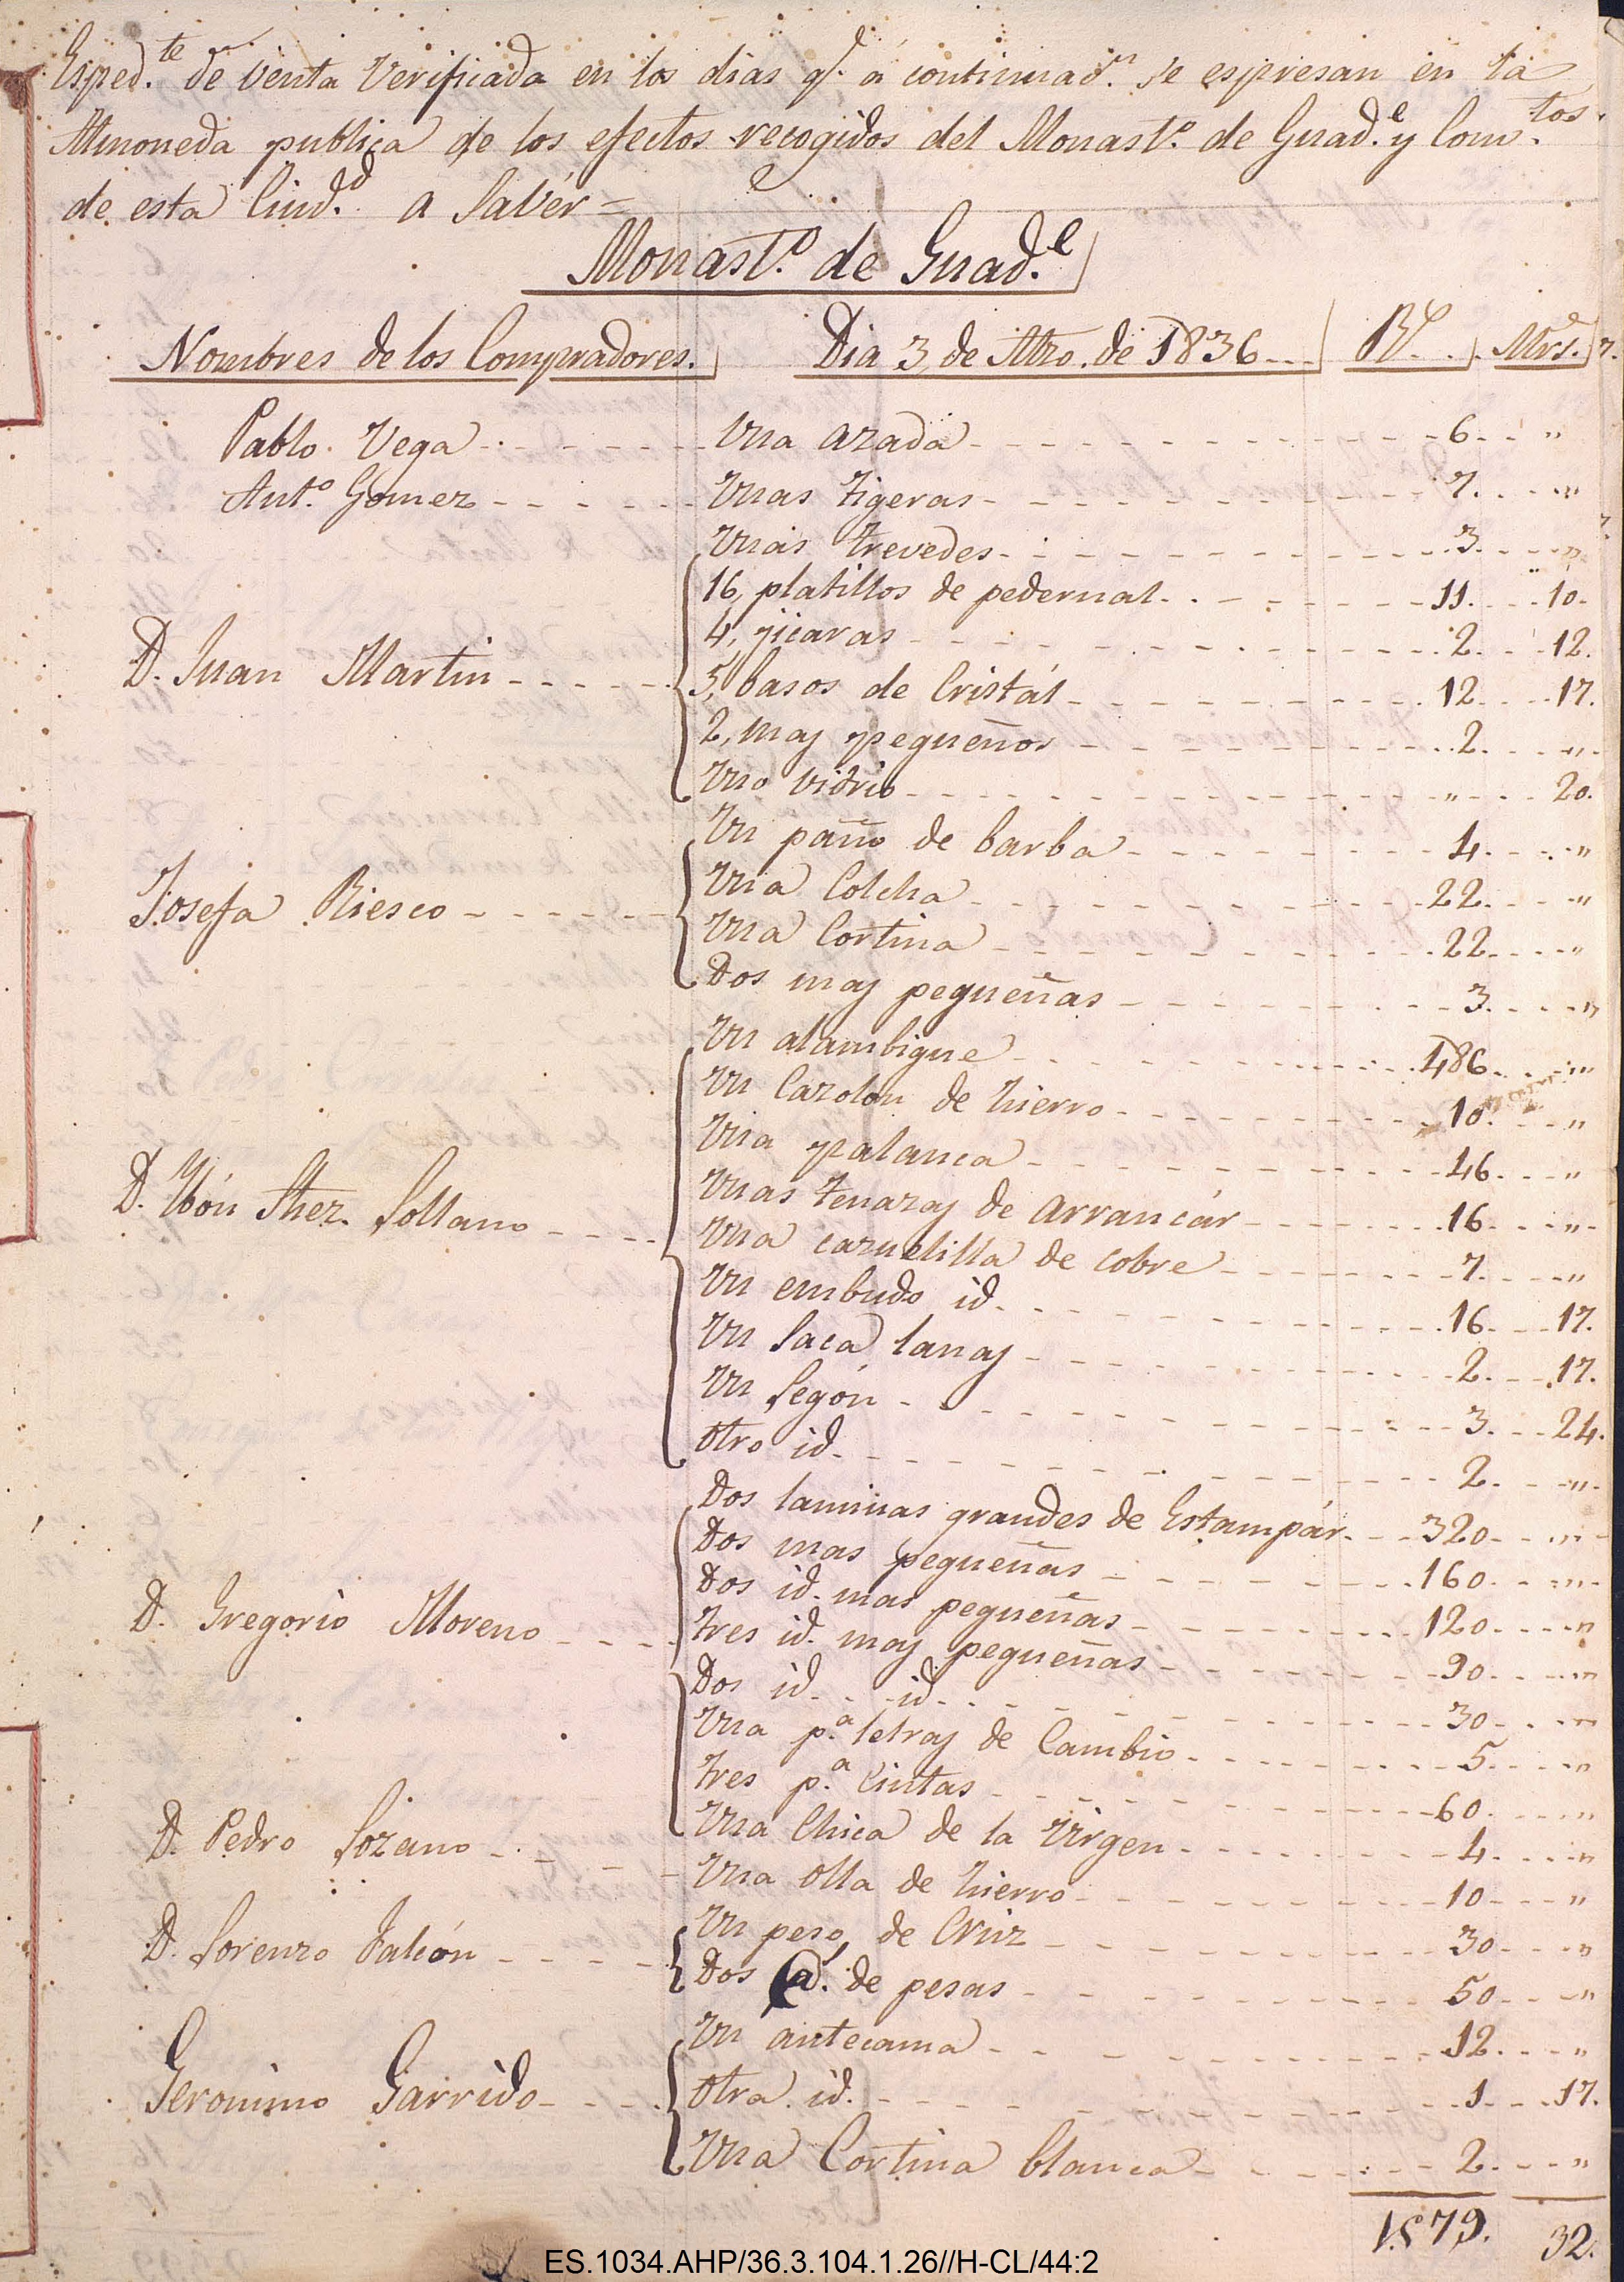 Esped.te de venta Verificada en los dias q.e a continuad.n se espresan en la
Almoneda publica de los efectos recogidos del Monast.o de Guad.e y Com.tos
de esta Ciud.d a Saver =
Monast.o de Guad.e
Nombres de los Compradores. Dia 3 de Mzo. de 1836 R.s Mrs.
Pablo Vega Una azada 6 "
Ant.o Gomez Unas tigeras 7. "
Unas trevedes 3. "
16, platillos de pedernal 11. 10.
4, jicaras 2. 12.
D. Juan Martin 5, basos de Cristál 12. 17.
2, mas pequeños 2. "
Uno vidrio " 20.
Un paño de barba 4. "
Josefa Riesco Una Colcha 22. "
Una Cortina 22. "
Dos mas pequeñas 3. "
Un alambique 486. "
Un Cazolon de hierro 10. "
Una palanca 46. "
D. Ybón Shez. Sollano Unas tenazas de arrancár 16 "
Una cazuelilla de cobre 7. "
Un embudo id. 16. 17.
Un Saca lanas 2. 17.
Un Segón 3. 24.
Otro id. 2. "
Dos laminas grandes de Estampár 320. "
Dos mas pequeñas 160. "
Dos id. mas pequeñas 120. "
D. Gregorio Moreno tres id. mas pequeñas 90. "
Dos id. id. 30. "
Una p.a letras de Cambio 5. "
tres p.a Cintas 60. "
Una Chica de la Virgen 4. "
D. Pedro Lozano Una olla de hierro 10 "
D. Lorenzo Falcón Un peso de Cruz 30. "
Dos de pesas 50 "
Un antecama 12. "
Geronimo Garrido Otra id. 1. 17.
Una Cortina blanca 2. "
1.879. 32.
ES.1034.AHP/36.3.104.1.26//H-CL/44:2